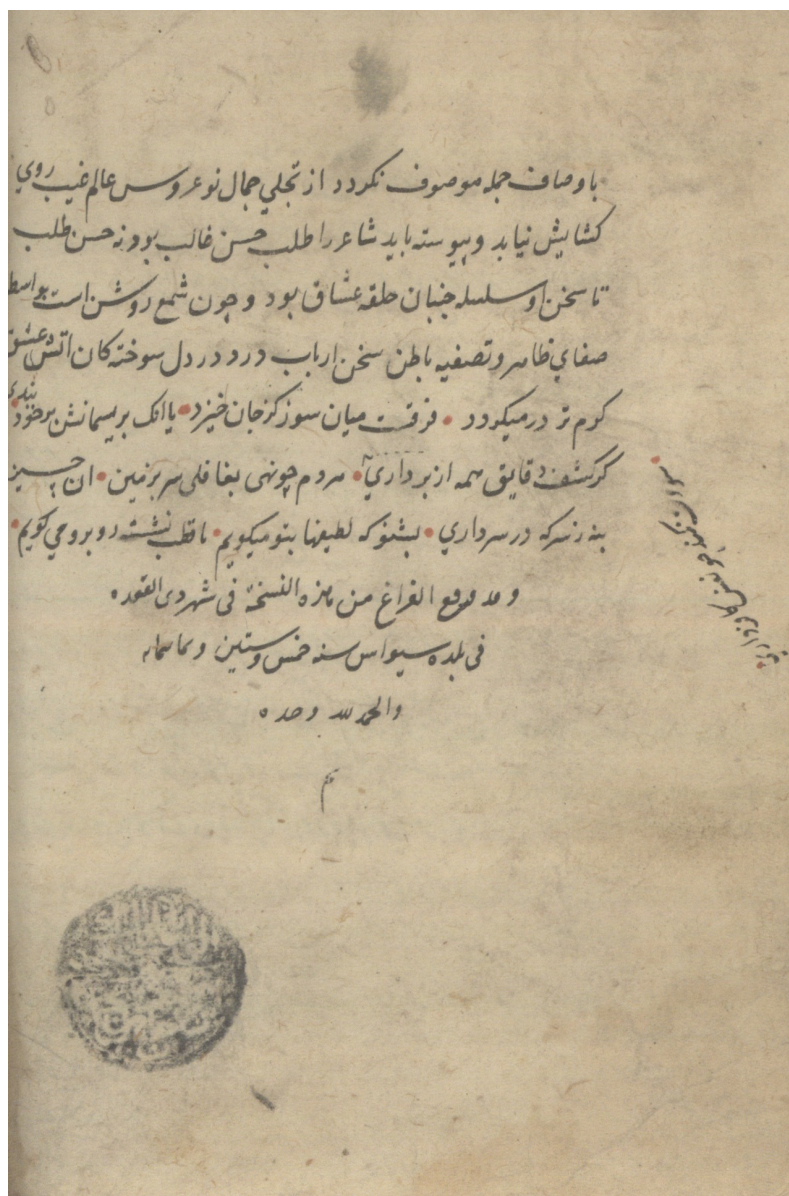 باوصاف جمله موصوف نکردد از تجلي جمال نوعروس عالم غیب روي
کشایش نیابد وپیوسته باید شاعر را طلب حسن غالب بود نه حسن طلب
تا سخن او سلسله جنبان حلقه عشاق بود و چون شمع روشن است بواسطه
صفاي ظاهر وتصفیه باطن سخن ارباب درد در دل سوختهکان اتش عشق
کرم تر درمیکردد • فرقست میان سوز کز جان خیزد • یا انک بریسمانش برخود بندي
کر کشف دقایق همه از برداري • مردم چو نهی بغافلی سر بزمین • ان
بنه ز سر که در سرداري • بشنو که لطیفها بتو میکویم • با قطب نشسته روبرو می کویم •
وقد وقع الفراغ من هذه النسخة فی شهر ذی القعده
فی بلده سیواس سنه خمس وستین وثمانمایه
والحمد لله وحده